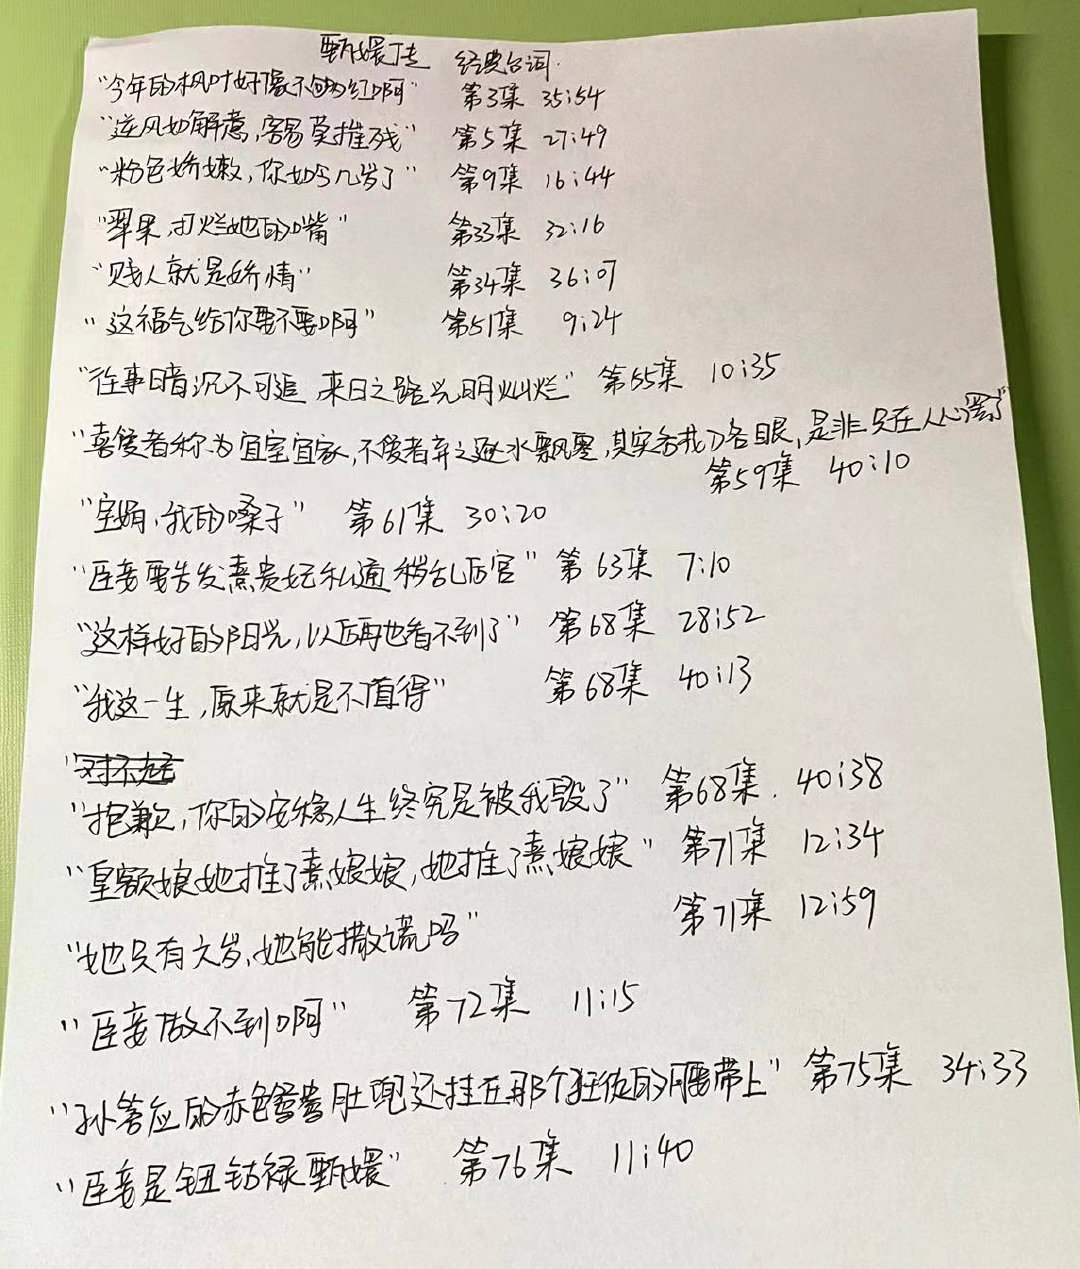 甄嬛传 经典台词
“今年的枫叶好像不够红啊” 第3集 35:54
“逆风如解意,容易莫摧残” 第5集 27:49
“粉色娇嫩,你如今几岁了” 第9集 16:44
“翠果,打烂她的嘴” 第33集 32:16
“贱人就是矫情” 第34集 36:07
“这福气给你要不要啊” 第51集 9:24
“往事暗沉不可追 来日之路光明灿烂” 第55集 10:35
“喜爱者称为宜室宜家,不爱者弃之逐水飘零,其实各我入各眼,是非只在人心罢了”
第59集 40:10
“宝娟,我的嗓子” 第61集 30:20
“臣妾要告发熹贵妃私通 秽乱后宫” 第63集 7:10
“这样好的阳光,以后再也看不到了” 第68集 28:52
“我这一生,原来就是不值得” 第68集 40:13
“抱歉,你的安稳人生终究是被我毁了” 第68集. 40:38
“皇额娘她推了熹娘娘,她推了熹娘娘” 第71集 12:34
“她只有六岁,她能撒谎吗” 第71集 12:59
“臣妾做不到啊” 第72集 11:15
“孙答应的赤色鸳鸯肚兜还挂在那个狂徒的腰带上” 第75集 34:33
“臣妾是钮钴禄甄嬛” 第76集 11:40